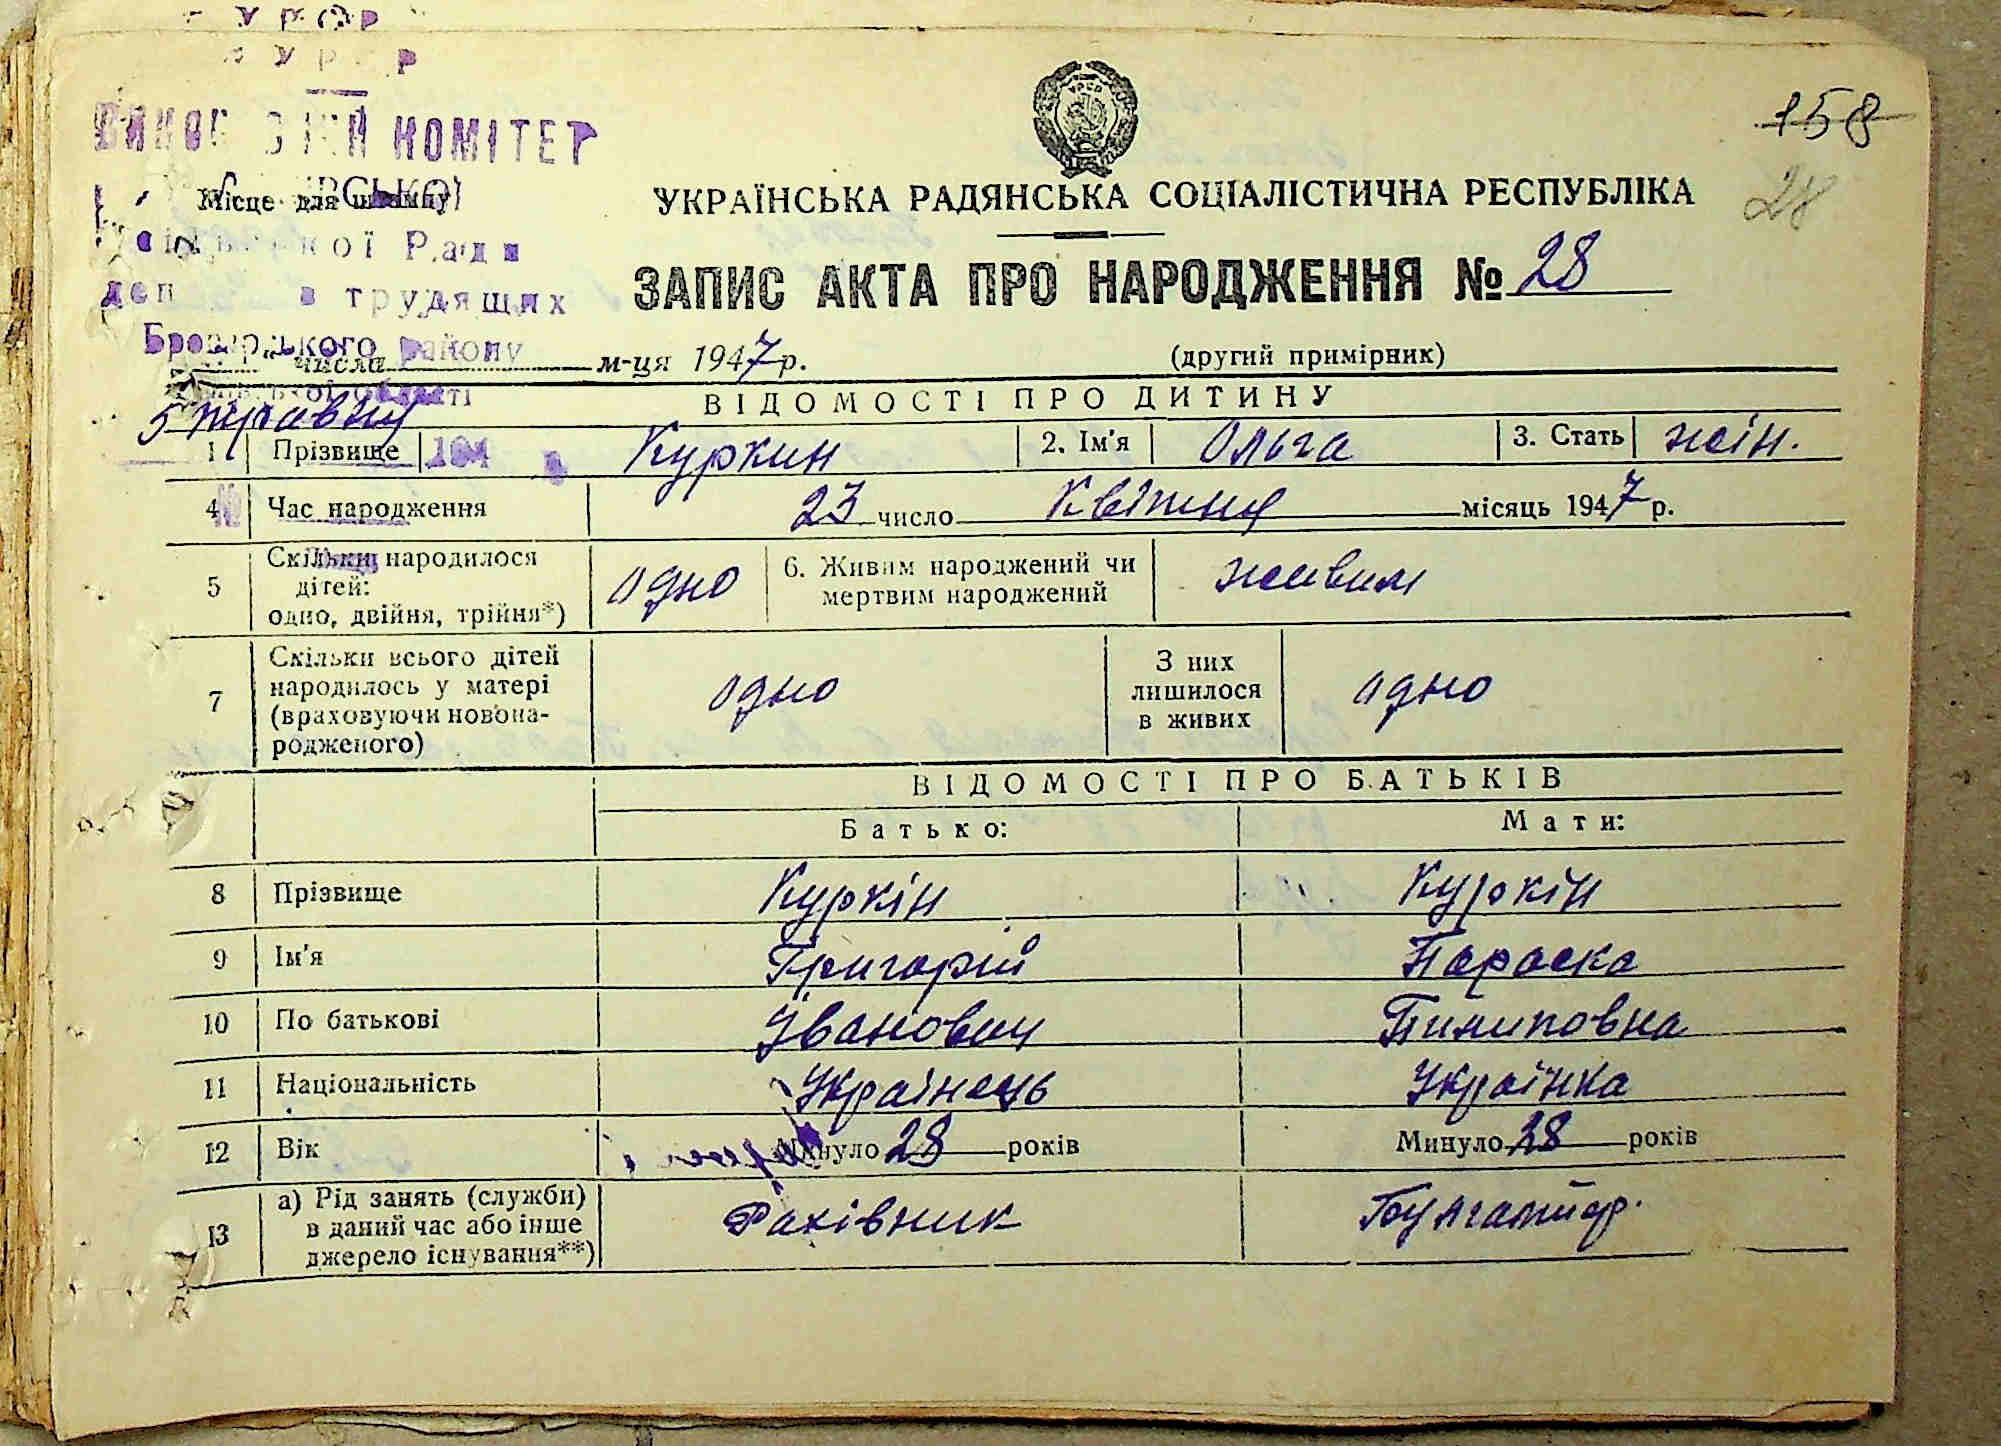 УРСР
УРСР
КОМІТЕТ
Місце для штампу
Ради
деп в трудящих
Броварського району
області
158
28
УКРАЇНСЬКА РАДЯНСЬКА СОЦІАЛІСТИЧНА РЕСПУБЛІКА
ЗАПИС АКТА ПРО НАРОДЖЕННЯ № 28
числа м-ця 1947 р. (другий примірник)
5 травня
ВІДОМОСТІ ПРО ДИТИНУ
1 Прізвище Куркин 2. Ім'я Ольга 3. Стать жін.
4 Час народження 23 число Квітня місяць 1947 р.
5 Скільки народилося дітей: одно, двійня, трійня*) одно 6. Живим народжений чи мертвим народжений живим
7 Скільки всього дітей народилось у матері (враховуючи новонародженого) одно З них лишилося в живих одно
ВІДОМОСТІ ПРО БАТЬКІВ
Батько: Мати:
8 Прізвище Куркін Куркін
9 Ім'я Григорій Параска
10 По батькові Іванович Пилиповна
11 Національність Українець Українка
12 Вік Минуло 28 років Минуло 28 років
13 а) Рід занять (служби) в даний час або інше джерело існування**) Рахівник Бухгалтер.